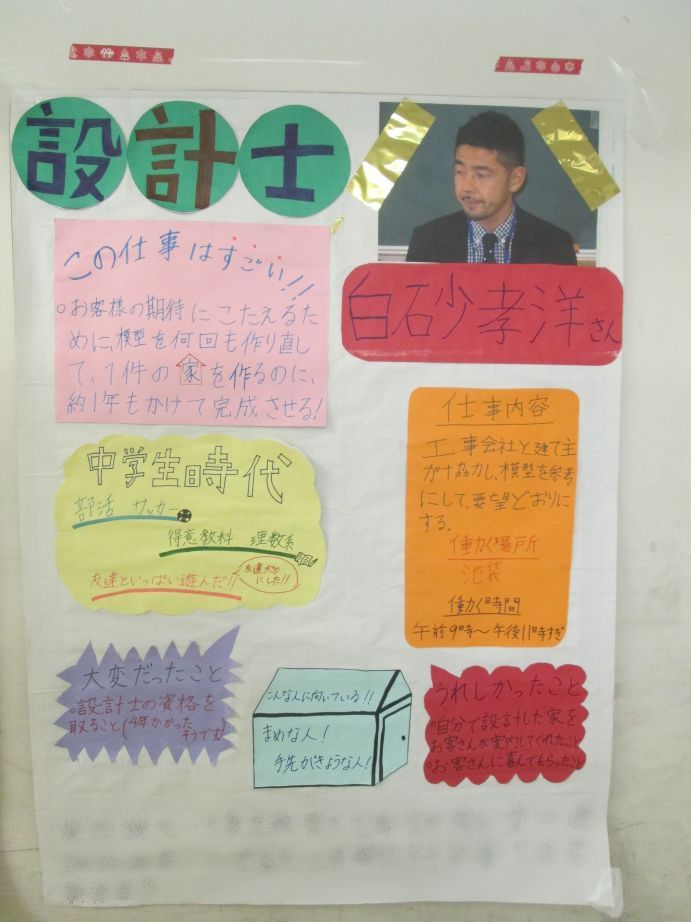 設計士
この仕事はすごい!!
○お客様の期待にこたえるた
めに、模型を何回も作り直し
て、1件の家を作るのに、
約1年もかけて完成させる!
白石少孝洋さん
中学生時代
部活 サッカー
得意教科 理数系
友達といっぱい遊んだ!!
友達大切
にした!!
仕事内容
工事会社と建て主
が協力し、模型を参考
にして、要望どおりに
する。
働く場所
池袋
働く時間
午前9時〜午後11時すぎ
大変だったこと
○設計士の資格を
取ること(4年かかった
そうです)
こんな人に向いている!!
まめな人!
手先がきような人!
うれしかったこと
○自分で設計した家を
お客さんが案内してくれたこと
○お客さんに喜んでもらったこと